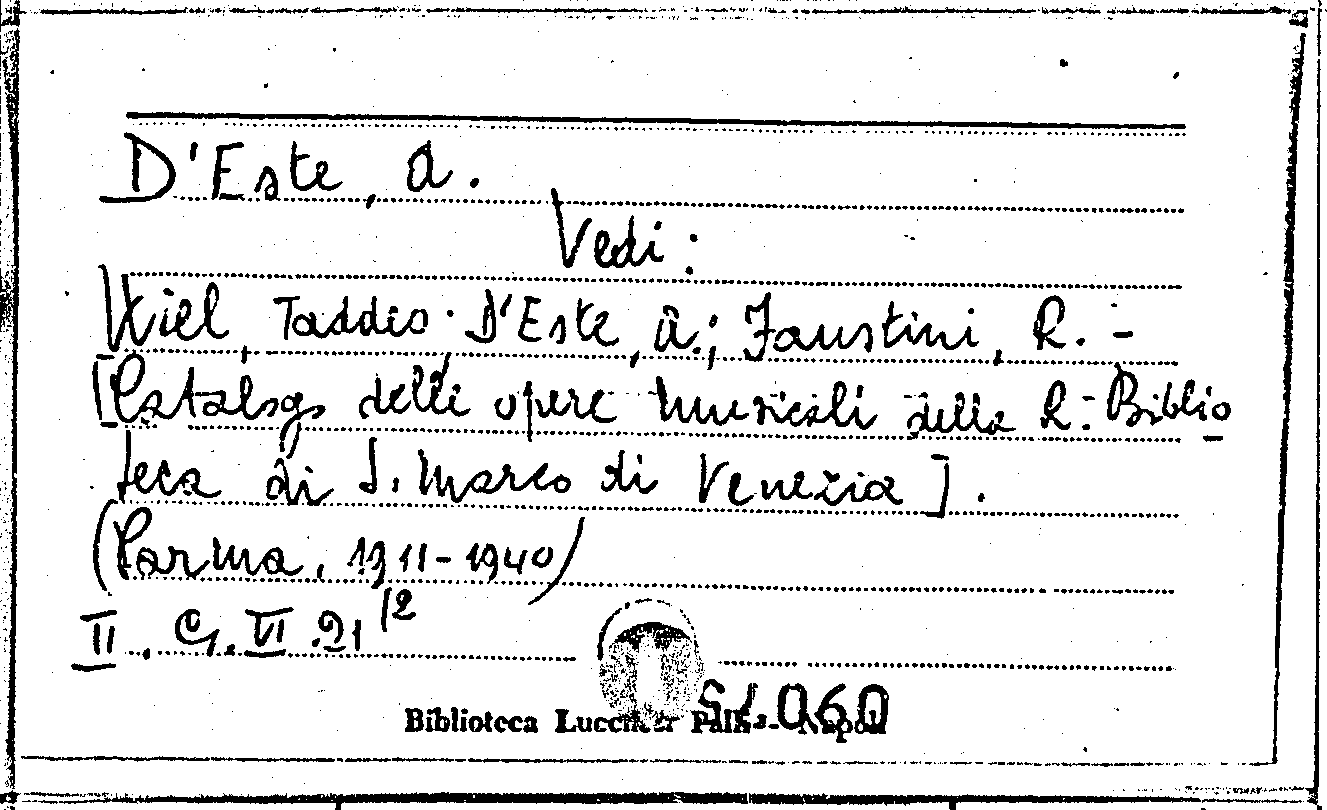 D'Este, A.
Vedi:
Wiel, Taddeo; D'Este, A.; Faustini, R. -
[Catalogo delle opere musicali della R. Biblio
teca di S. Marco di Venezia].
(Parma, 1911-1940)
II. G. VI. 21/2
Biblioteca Lucchesi Palli - Napoli